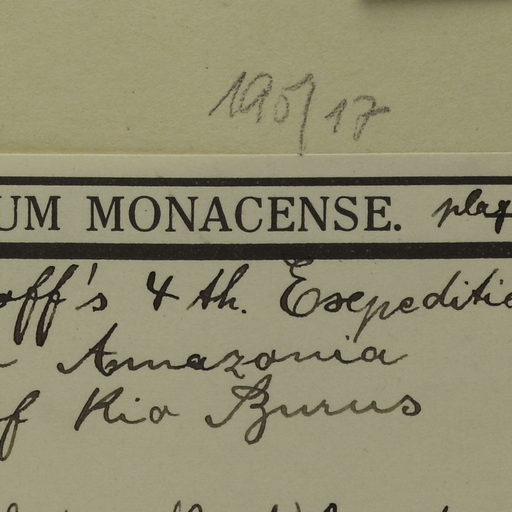 195/17
UM MONACENSE. plag
off's 4 th. Esepeditio
Amazonia
of Rio Burus